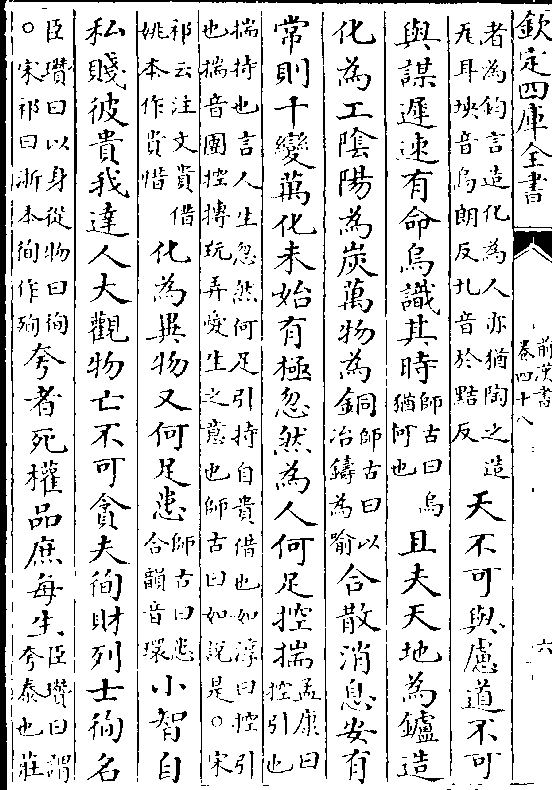 欽定四庫全書
前漢書
卷四十八
六
者為鈞言造化為人亦猶陶之造
瓦耳坱音烏朗反圠音於黠反
天不可與慮道不可
與謀遲速有命烏識其時
師古曰烏
猶何也
且夫天地為鑪造
化為工陰陽為炭萬物為銅
師古曰以
冶鑄為喻
合散消息安有
常則千變萬化未始有極忽然為人何足控揣
孟康曰
控引也
揣持也言人生忽然何足引持自貴借也如淳曰控引
也揣音團控摶玩弄愛生之意也師古曰如說是○宋
祁云注文貴借
姚本作貴惜
化為異物又何足患
師古曰患
合韻音環
小智自
私賤彼貴我達人大觀物亡不可貪夫徇財列士徇名
臣瓚曰以身從物曰徇
○宋祁曰浙本徇作殉
夸者死權品庶每生
臣瓚曰謂
夸泰也莊